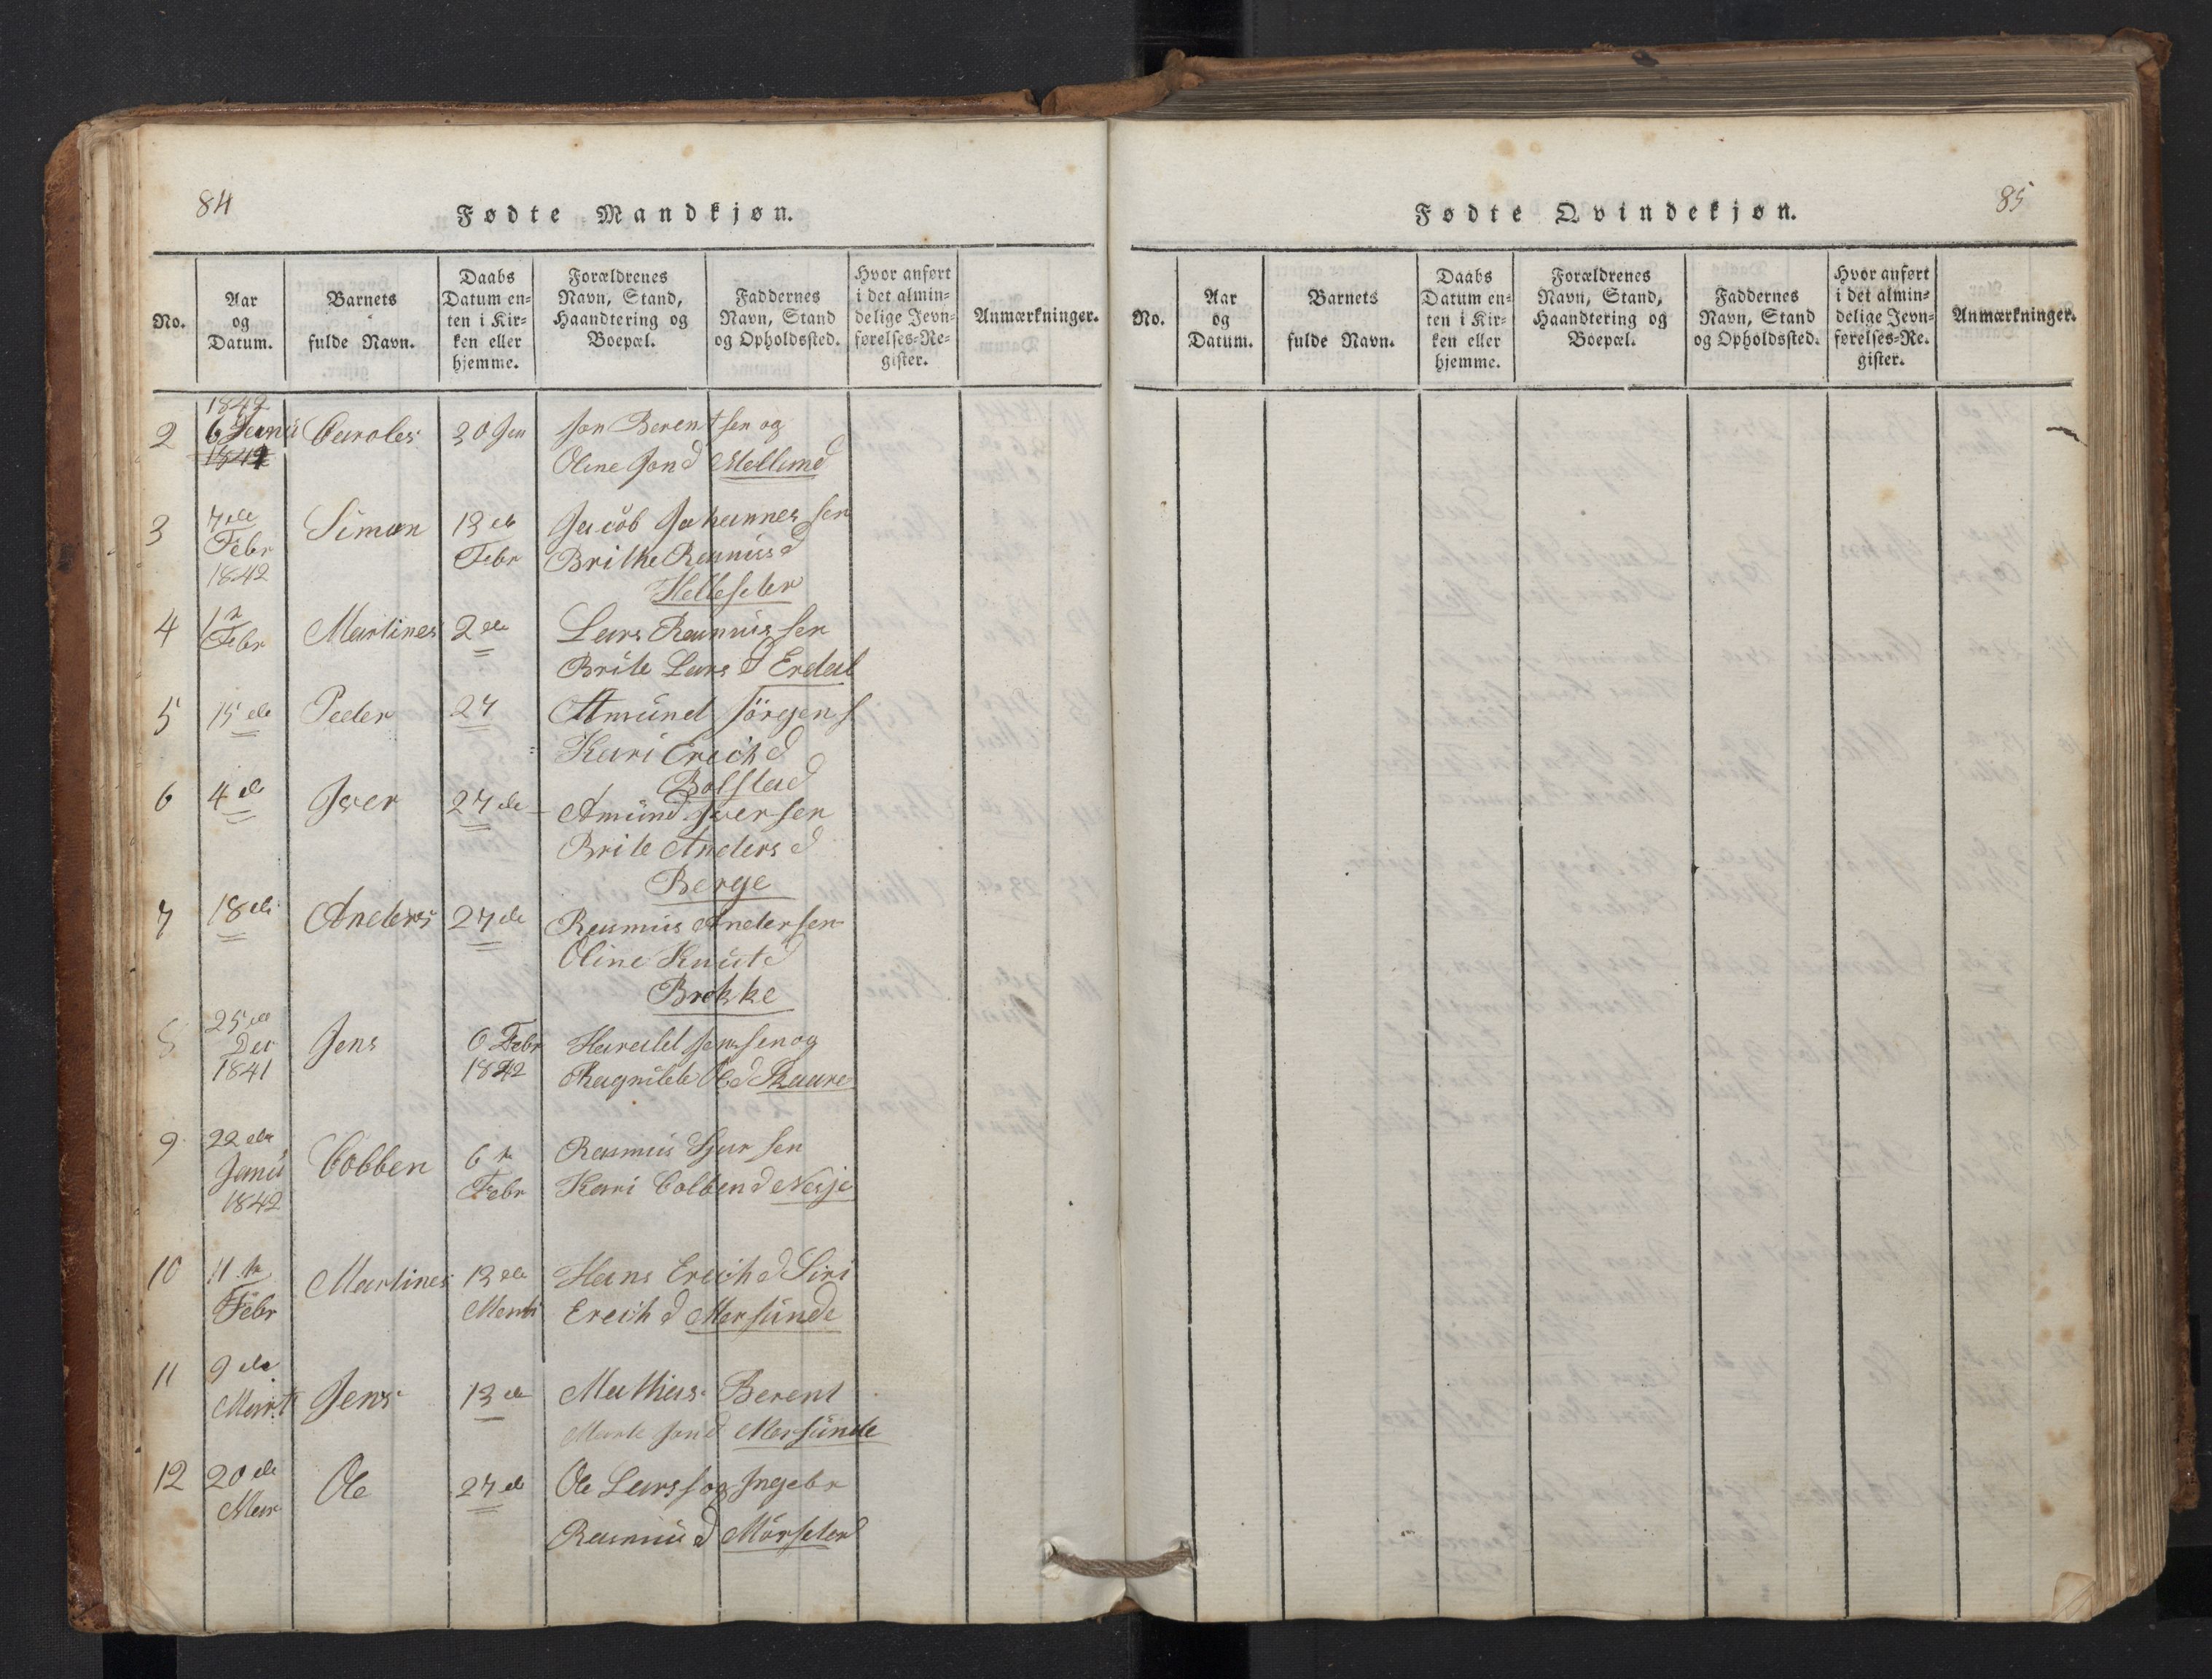 84
Fødte Mandkjøn.
No.
Aar og Datum.
Barnets fulde Navn.
Daabs Datum en- ten i Kir- ken eller hjemme.
Forældrenes Navn, Stand, Haandtering og Boepæl.
Faddernes Navn, Stand og Opholdssted.
Hvor anført i det almin- delige Jevn- førelses-Re- gister.
Anmærkninger.
1842
2 6 Janu Caroles 30 Jan Jon Berentsen og
1841 Oline Jon d Mellund
3 7de Simon 13 de Jacob Johannessen
Febr Febr Brithe Rasmus d
1842 Helleseter
4 1ste Martines 2 de Lars Rasmussen
Febr Brite Lars d Erdal
5 15 de Peder 27 Amund Jörgens
Kari Erich d
Bolstad
6 4 de Iver 27 de Amund Iversen
Brite Anders d
Berge
7 18 de Anders 27 de Rasmus Andersen
Oline Knut d
Brekke
8 25 de Jens 6 Febr Harald Jenssen og
Dec
1841 1842 Ragnilde Ole d Skaare
9 22 de Colben 6 te Rasmus Sjursen
Janu Febr Kari Colben d Nesje
1842
10 11 te Martines 13 de Hans Erich d Siri
Febr Marti Erich d Morsunde
11 9 de Jens 13 de Mathias Berent
Marti Marte Jon d Morsunde
12 20 de Ole 27 de Ole Lars s og Ingebr
Mar Rasmus d Mörseter
85
Fødte Qvindekjøn.
No.
Aar og Datum.
Barnets fulde Navn.
Daabs Datum en- ten i Kir- ken eller hjemme.
Forældrenes Navn, Stand, Haandtering og Boepæl.
Faddernes Navn, Stand og Opholdssted.
Hvor anført i det almin- delige Jevn- førelses-Re- gister.
Anmærkninger.